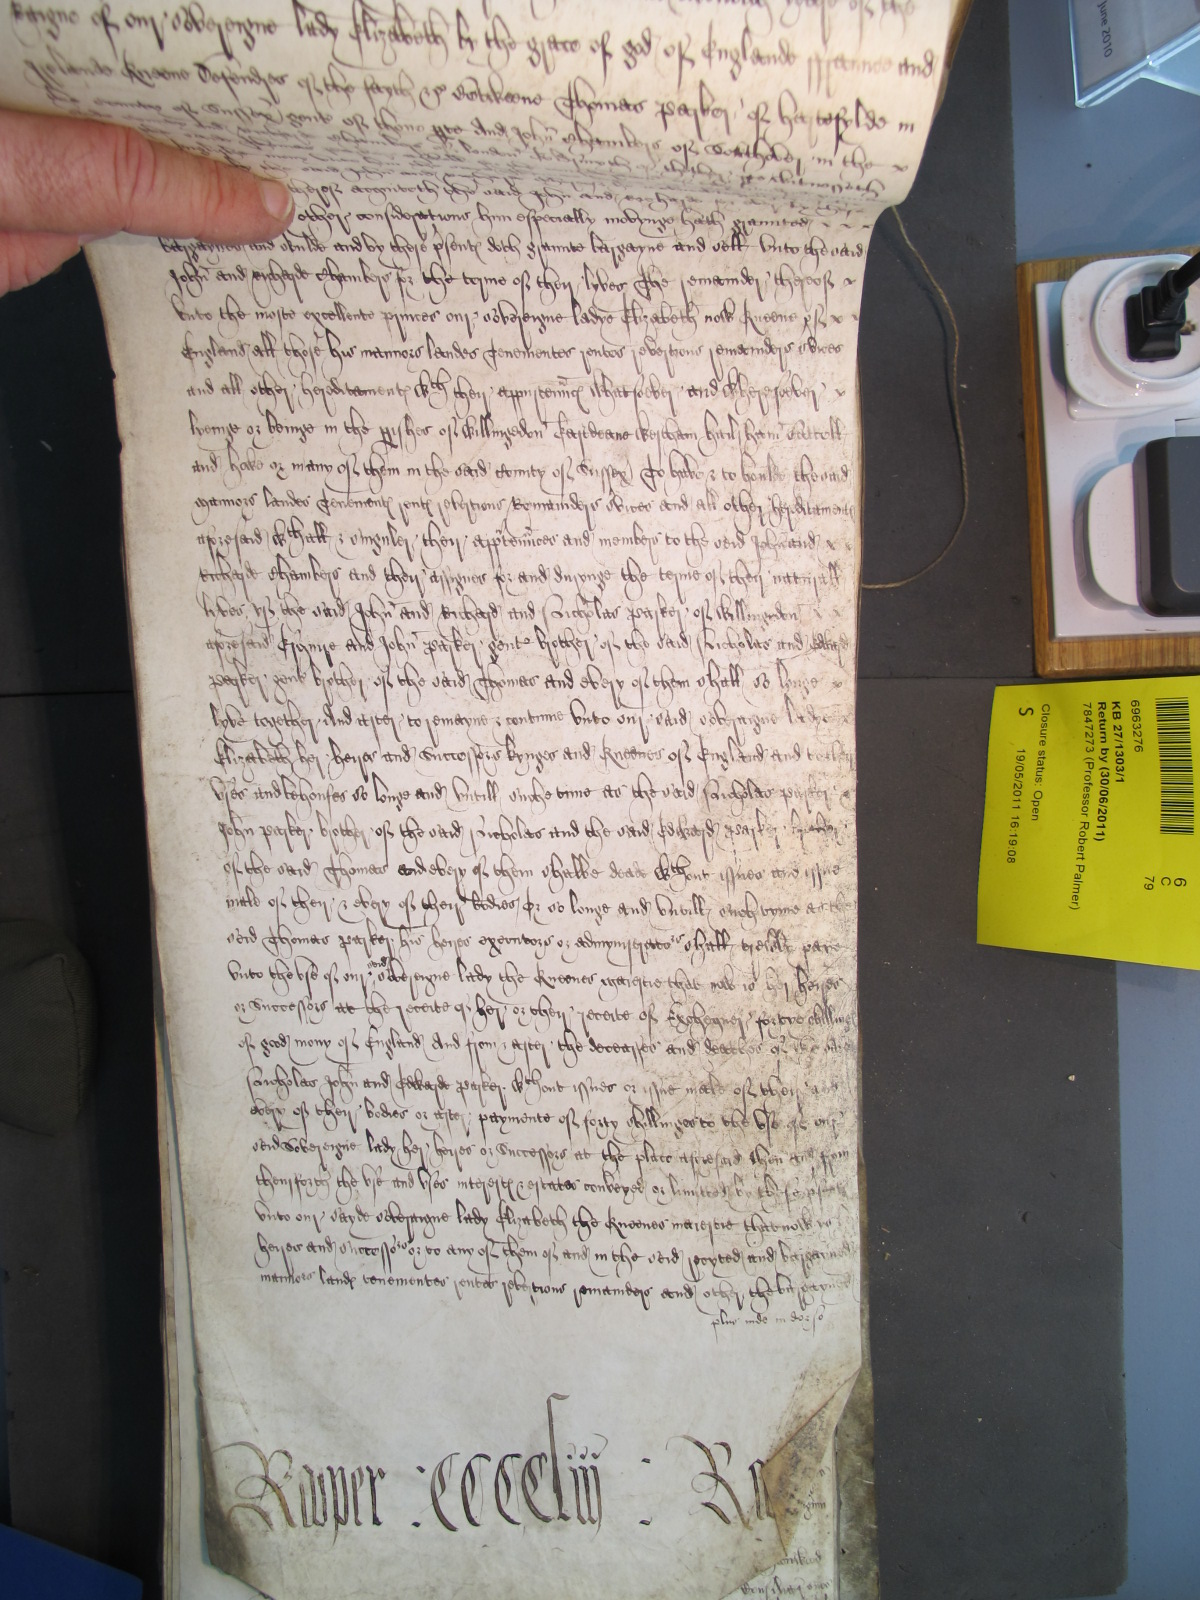 Raigne of our Sovereigne lady Elizabeth by the grace of god of Englande ffraunce and
Irelande Queene Defendres of the fayth &c Betweene Thomas Parker of hartefylde in
the County of Sussex gent of thone pte And John Chambers of Southover in the
other considerations him especially movynge hath graunted
bargayned and soulde and by these psent doth graunte bargayne and sell unto the said
John and Richarde Chambers for the terme of their lyves The remainder thereof
unto the moste excellente princes our Sovereigne ladye Elizabeth now Queene of
England all those his mannors landes Tenementes rentes revertions remainders services
and all other hereditament wth their appurtennc whatsoever and wheresoever
lyenge or beinge in the pishes of Willingedon Easdeane Westham hailsham
and hove or many of them in the said County of Sussex To have & to houlde the said
mannors landes Tenement rent revertions Remainders Svices and all other hereditament
aforesaid wth all & singuler their apptennces and members to the said John and
Richarde Chambers and their assignes for and duringe the terme of their naturall
lyves yf the said John and Richard and Nicholas Parker of Willingedon
aforesaid Esquire and John Parker gent brother of the said Nicholas and Edward
Parker gent brother of the said Thomas and every of them shall so longe
lyve together And after to remayne & contynue unto our said Sovereigne ladye
Elizabeth her heires and Successors kynges and Queenes of England and to their
uses and behoufes so longe and untill suche time as the said Nicholas Parker
John Parker brother of the said Nicholas and the said Edward Parker brother
of the said Thomas and every of them shalbe deade wthout issues and issue
male of their & every of their bodies Or so longe and untill such tyme as the
said Thomas Parker his heires executors or admynistrators shall paye
unto the use of our said Sovereigne lady the Queenes majestie that now is her heires
or Successors at the receite of her or their receite of Exchequer fortye shillings
of good mony of England And from & after the deceasses and deathes of the said
Nicholas John and Edwarde Parker wthout issues or issue male of their and
every of their bodies or after paymente of forty shillinges to the use of our
said Sovereigne lady her heires or Successors at the place aforesaid then and from
thensforth the use and uses interest & estates conveyed or limitted by these psent
unto our sayde Sovereigne lady Elizabeth the Queenes majestie that now is
heires and Successors or to any of them of and in the said recyted and bargayned
mannors land tenementes rentes revertions remainders and other the bargayned
plus inde in dorso
Roper : CCCCliij : Ro
June 2010
6963276
KB 27/1303/1
Return by (30/06/2011)
7847273 (Professor Robert Palmer)
Closure status: Open
S 19/05/2011 16:19:08
6
C
79